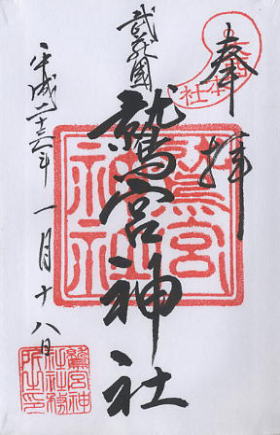 奉拝
武蔵国
鷲宮神社
平成二十三年一月十八日
鷲宮神社
鷲宮神社社務所之印